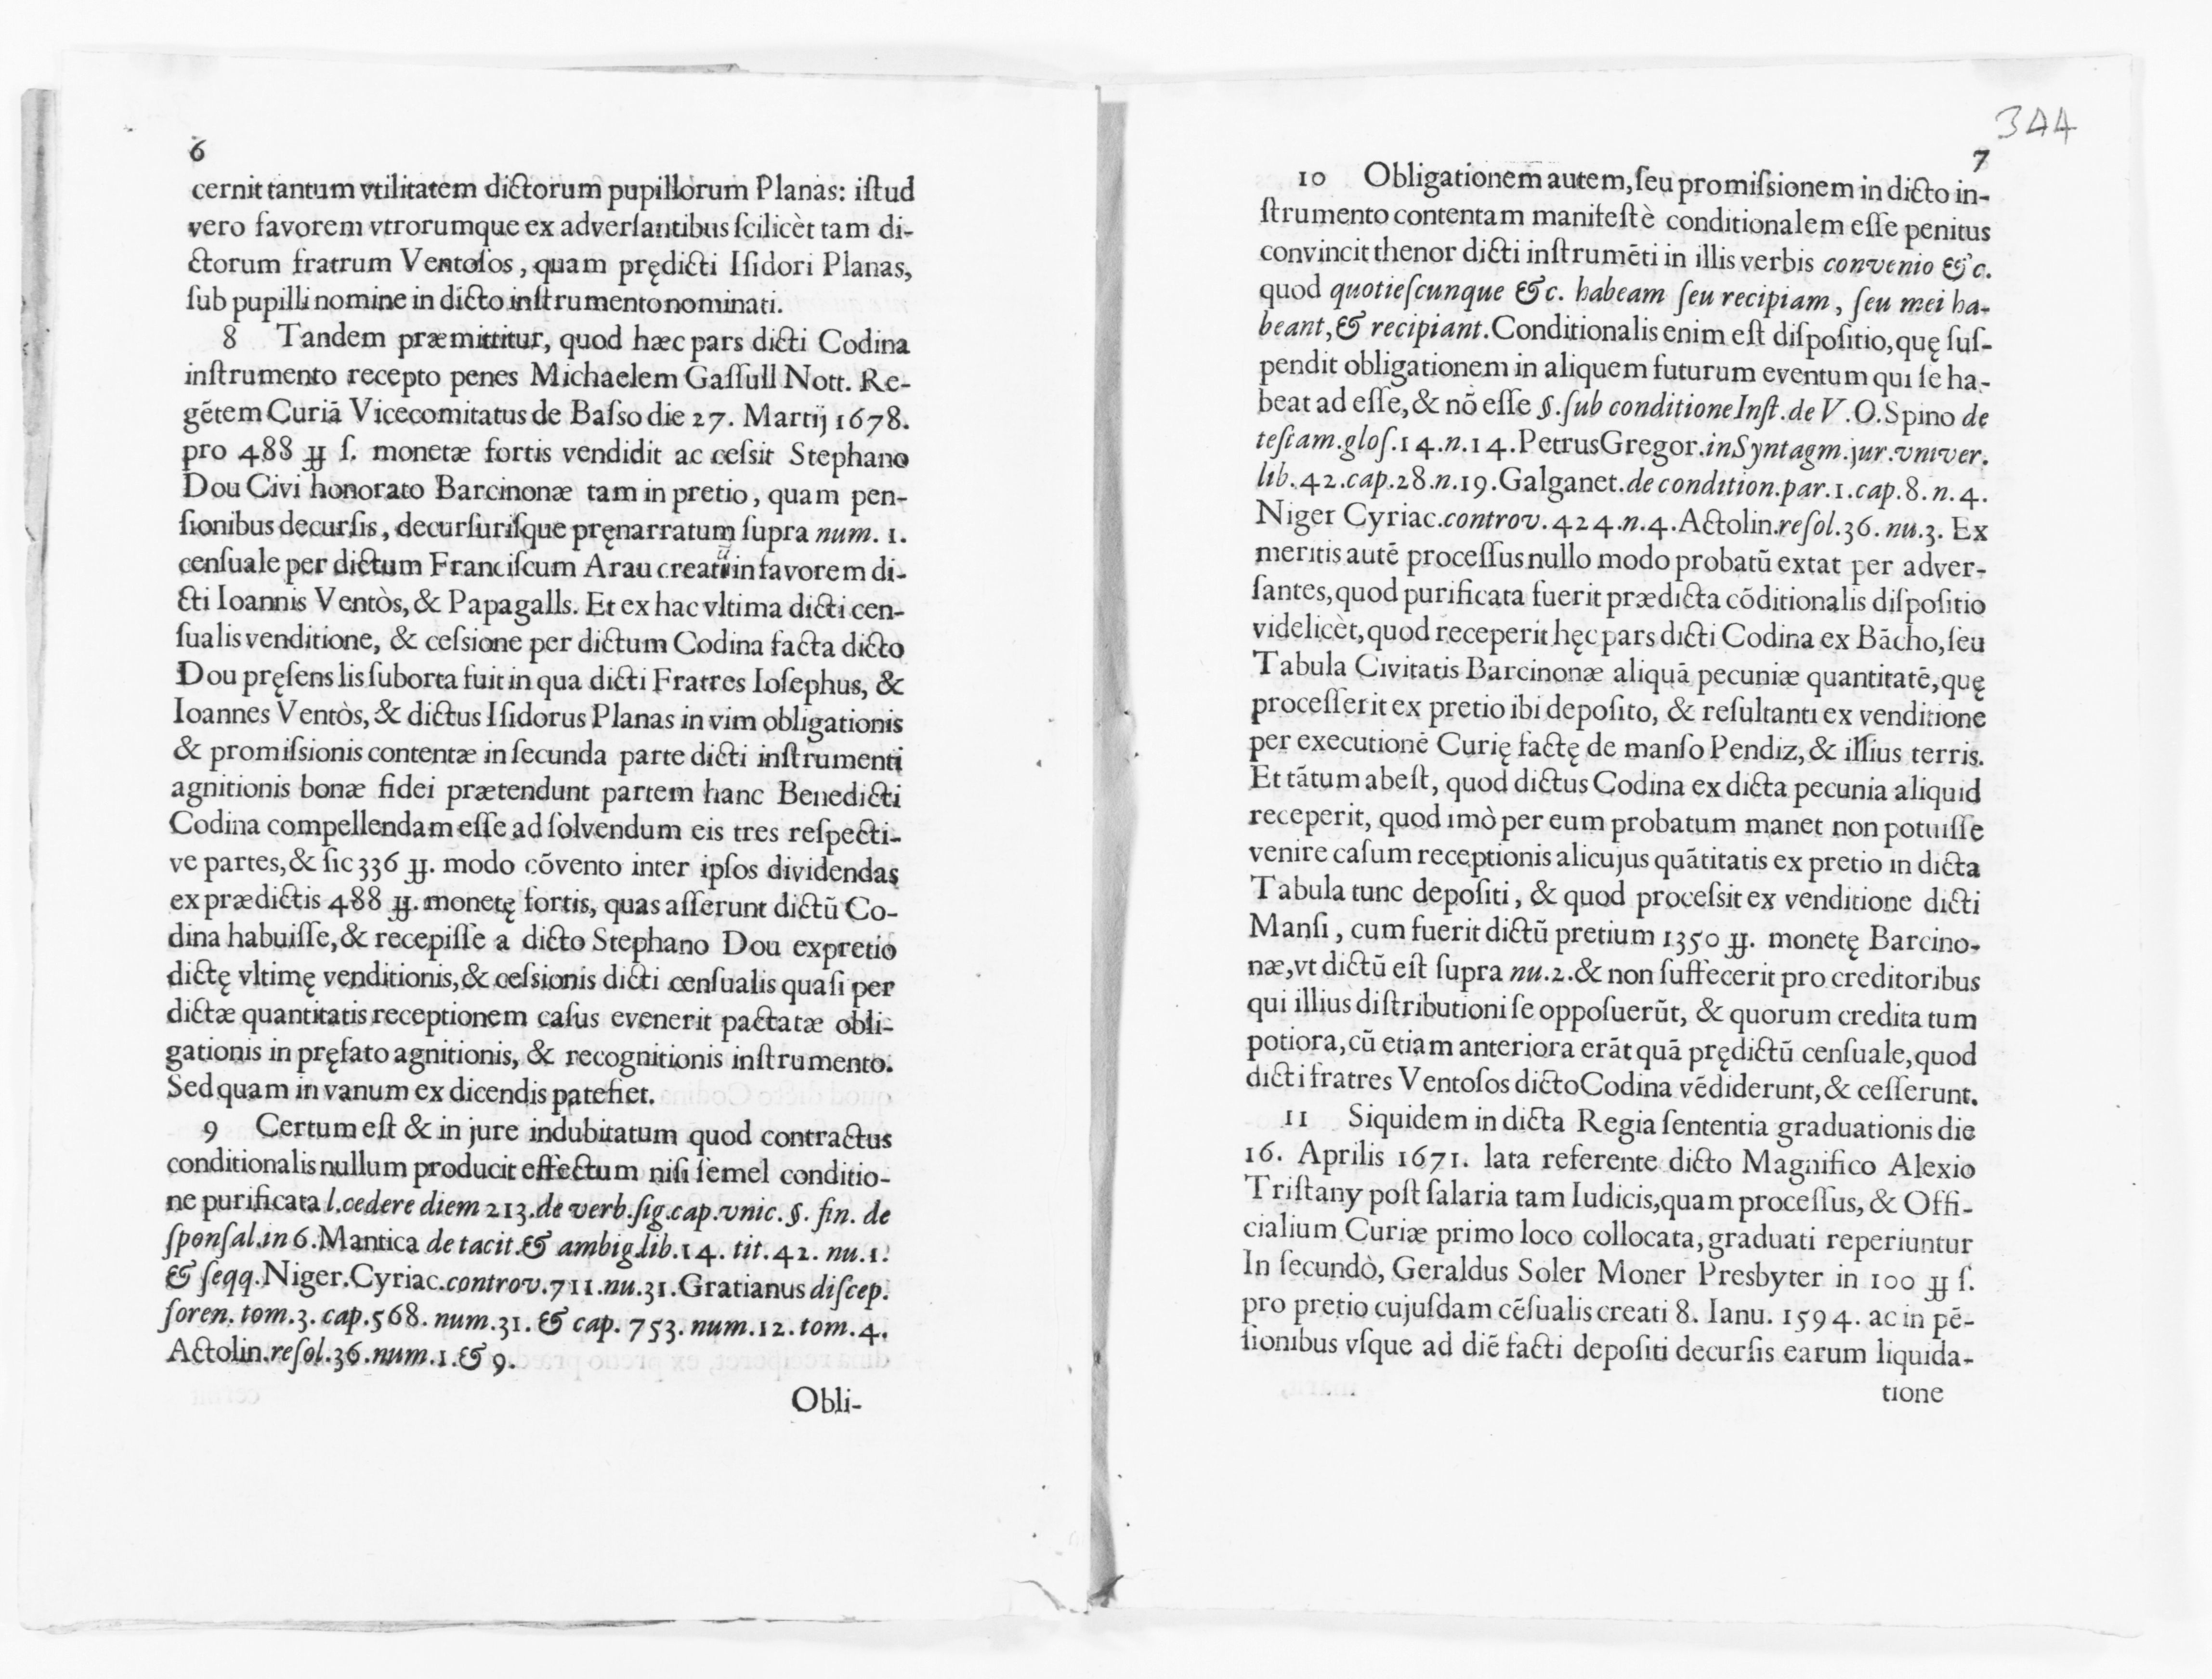 6
cernit tantum vtilitatem dictorum pupillorum Planas: iſtud
vero favorem vtrorumque ex adverſantibus ſcilicèt tam di-
ctorum fratrum Ventoſos, quam prędicti Iſidori Planas,
ſub pupilli nomine in dicto inſtrumento nominati.
8 Tandem præmittitur, quod hæc pars dicti Codina
inſtrumento recepto penes Michaelem Gaſſull Nott. Re-
gẽtem Curiã Vicecomitatus de Baſso die 27. Martij 1678.
pro 488 ỻ ſ. monetæ fortis vendidit ac ceſsit Stephano
Dou Civi honorato Barcinonæ tam in pretio, quam pen-
ſionibus decurſis, decurſuriſque pręnarratum ſupra num. 1.
cenſuale per dictum Franciſcum Arau creatũ in favorem di-
cti Ioannis Ventòs, & Papagalls. Et ex hac vltima dicti cen-
ſualis venditione, & ceſsione per dictum Codina facta dicto
Dou pręſens lis ſuborta fuit in qua dicti Fratres Ioſephus, &
Ioannes Ventòs, & dictus Iſidorus Planas in vim obligationis
& promiſsionis contentæ in ſecunda parte dicti inſtrumenti
agnitionis bonæ fidei prætendunt partem hanc Benedicti
Codina compellendam eſſe ad ſolvendum eis tres reſpecti-
ve partes, & ſic 336 ỻ. modo cõvento inter ipſos dividendas
ex prædictis 488 ỻ. monetę fortis, quas aſſerunt dictũ Co-
dina habuiſſe, & recepiſſe a dicto Stephano Dou ex pretio
dictę vltimę venditionis, & ceſsionis dicti cenſualis quaſi per
dictæ quantitatis receptionem caſus evenerit pactatæ obli-
gationis in pręfato agnitionis, & recognitionis inſtrumento.
Sed quam in vanum ex dicendis patefiet.
9 Certum eſt & in jure indubitatum quod contractus
conditionalis nullum producit effectum niſi ſemel conditio-
ne purificata l. cedere diem 213. de verb. ſig. cap. vnic. §. fin. de
ſponſal. in 6. Mantica de tacit. & ambig. lib. 14. tit. 42. nu. 1.
& ſeqq. Niger. Cyriac. controv. 711. nu. 31. Gratianus diſcep.
foren. tom. 3. cap. 568. num. 31. & cap. 753. num. 12. tom. 4.
Actolin. reſol. 36. num. 1. & 9.
Obli-
344
7
10 Obligationem autem, ſeu promiſsionem in dicto in-
ſtrumento contentam manifeſtè conditionalem eſſe penitus
convincit thenor dicti inſtrumẽti in illis verbis convenio &c.
quod quotieſcunque &c. habeam ſeu recipiam, ſeu mei ha-
beant, & recipiant. Conditionalis enim eſt diſpoſitio, quę ſuſ-
pendit obligationem in aliquem futurum eventum qui ſe ha-
beat ad eſſe, & nõ eſſe §. ſub conditione Inſt. de V. O. Spino de
teſtam. gloſ. 14. n. 14. Petrus Gregor. in Syntagm. jur. vniver.
lib. 42. cap. 28. n. 19. Galganet. de condition. par. 1. cap. 8. n. 4.
Niger Cyriac. controv. 424. n. 4. Actolin. reſol. 36. nu. 3. Ex
meritis autẽ proceſſus nullo modo probatũ extat per adver-
ſantes, quod purificata fuerit prædicta cõditionalis diſpoſitio
videlicèt, quod receperit hęc pars dicti Codina ex Bãcho, ſeu
Tabula Civitatis Barcinonæ aliquã pecuniæ quantitatẽ, quę
proceſſerit ex pretio ibi depoſito, & reſultanti ex venditione
per executionẽ Curię factę de manſo Pendiz, & illius terris.
Et tãtum abeſt, quod dictus Codina ex dicta pecunia aliquid
receperit, quod imò per eum probatum manet non potuiſſe
venire caſum receptionis alicujus quãtitatis ex pretio in dicta
Tabula tunc depoſiti, & quod proceſsit ex venditione dicti
Manſi, cum fuerit dictũ pretium 1350 ỻ. monetę Barcino-
næ, vt dictũ eſt ſupra nu. 2. & non ſuffecerit pro creditoribus
qui illius diſtributioni ſe oppoſuerũt, & quorum credita tum
potiora, cũ etiam anteriora erãt quã prędictũ cenſuale, quod
dicti fratres Ventoſos dicto Codina vẽdiderunt, & ceſſerunt.
11 Siquidem in dicta Regia ſententia graduationis die
16. Aprilis 1671. lata referente dicto Magnifico Alexio
Triſtany poſt ſalaria tam Iudicis, quam proceſſus, & Offi-
cialium Curiæ primo loco collocata, graduati reperiuntur
In ſecundò, Geraldus Soler Moner Presbyter in 100 ỻ ſ.
pro pretio cujuſdam cẽſualis creati 8. Ianu. 1594. ac in pẽ-
ſionibus vſque ad diẽ facti depoſiti decurſis earum liquida-
tione